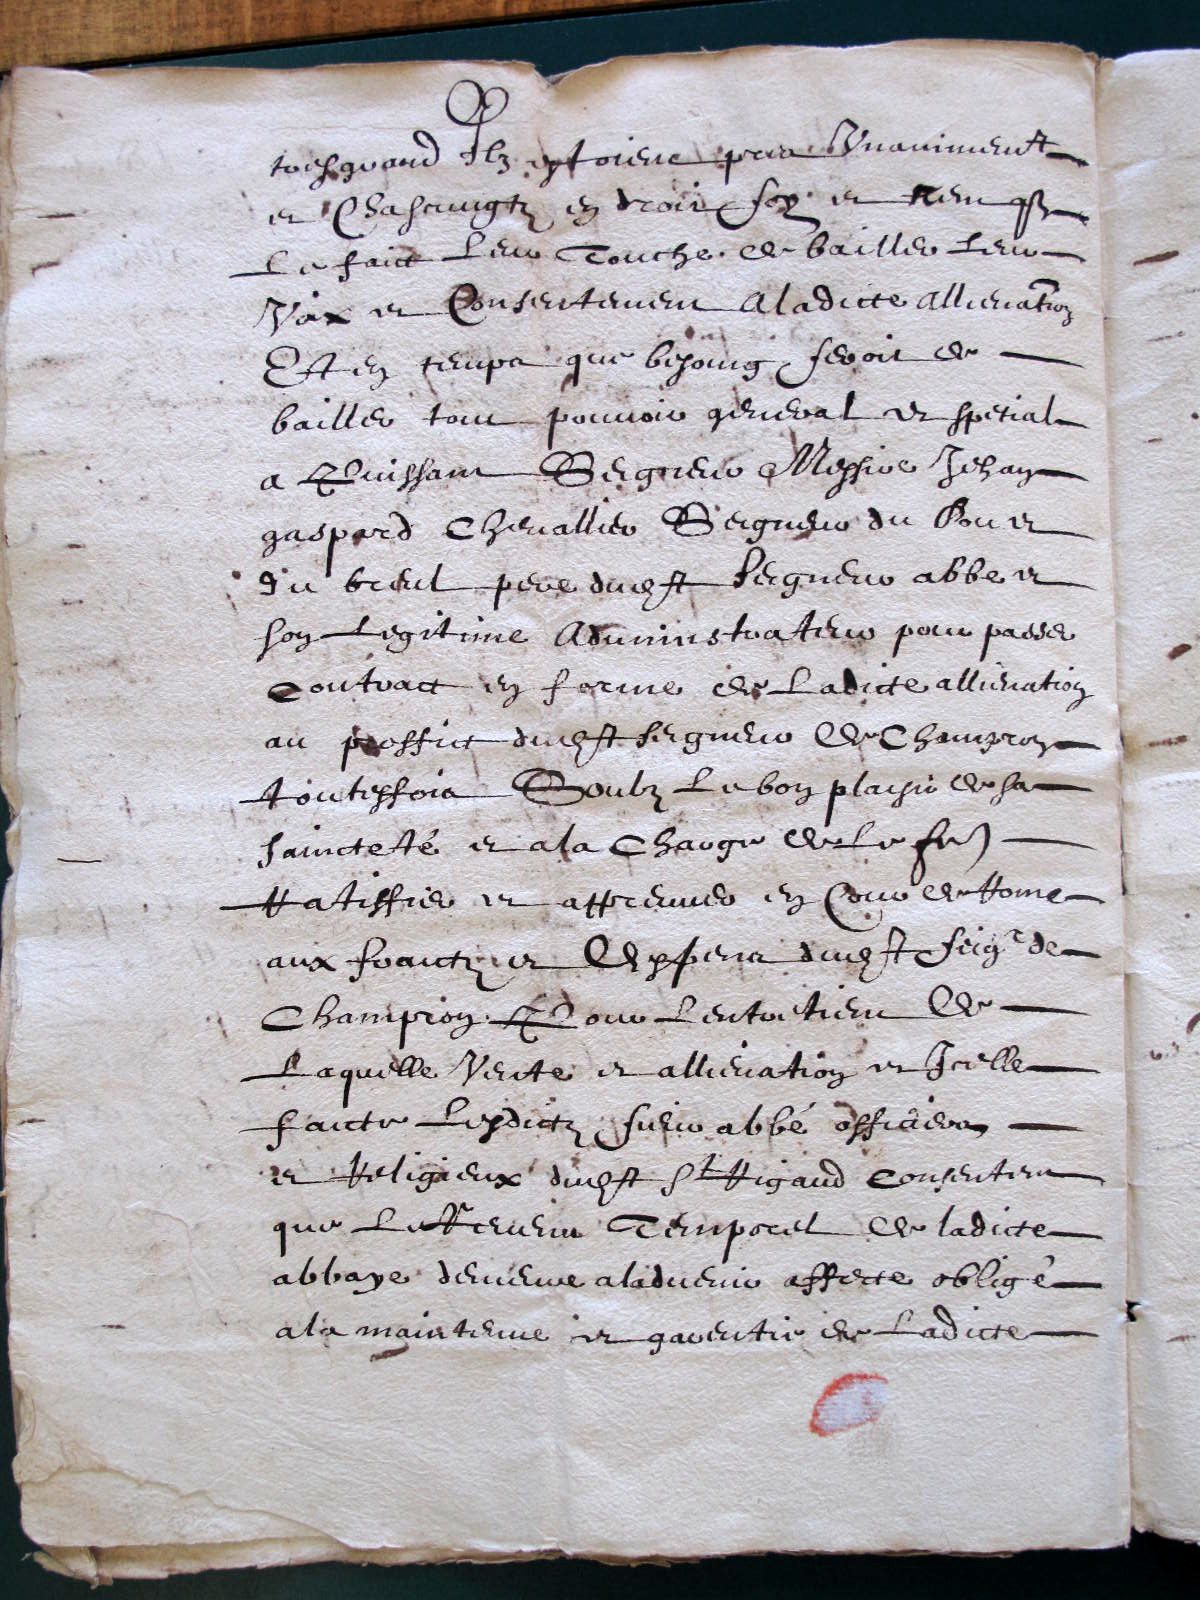 toes quand Ilz estoient pnts Unanimemt
et Chascungtz en droit soy et
Le faict Leur Touche de bailler Leur
Voix et Consentement A ladicte allienation
Et en temps que besoing seroit de
bailler tout pouvoir general et spetial
a Puissant Seigneur Messire Jehan
gaspard Chevallier Seigneur du Sou et
du breul pere dudist seigneur abbe et
son Legitime Administrateur pour passer
Contract en forme de Ladicte allienation
au proffict dudist seigneur de Champron
touteffois Soubz Le bon plaisir de sa
saincteté et a la Charge de Le fe
Ratiffier et appreuver en Cour de Rome
aux fraictz et Despens dudist seigr de
Champron Pour Lentretien de
Laquelle Vente et allienation et Icelle
faicte Lesdictz sieur abbé officiers
et Religieux dudist St Rigaud consentent
que Le Revenu Temporel de ladicte
abbaye demeure aladvenir affecte obligé
a la maintenue et garentie de Ladicte